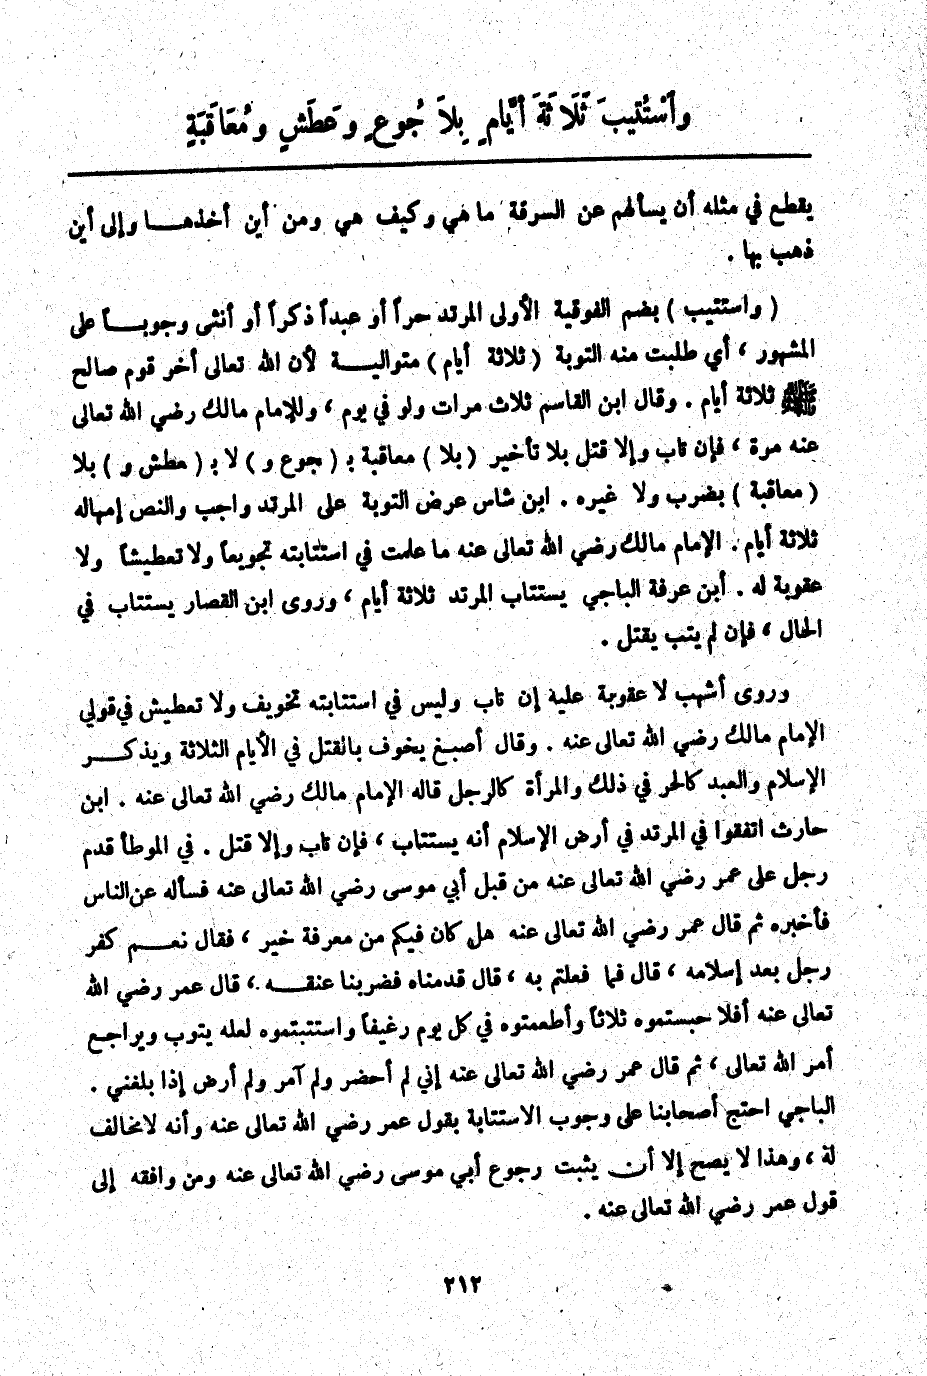 وَٱسْتُتِيبَ ثَلَاثَةَ أَيَّامٍ بِلَا جُوعٍ وَعَطَشٍ وَمُعَاقَبَةٍ
يقطع في مثله أن يسألهم عن السرقة ما هي وكيف هي ومن أين أخذهـا وإلى أين
ذهب بها .
( واستتيب ) بضم الفوقية الأولى المرتد حراً أو عبداً ذكراً أو أنثى وجوبـاً على
المشهور ، أي طلبت منه التوبة ( ثلاثة أيام ) متواليـة لأن الله تعالى أخر قوم صالح
ﷺ ثلاثة أيام . وقال ابن القاسم ثلاث مرات ولو في يوم ، وللإمام مالك رضي الله تعالى
عنه مرة ، فإن تاب وإلا قتل بلا تأخير ( بلا ) معاقبة بـ ( جوع و ) لا بـ ( عطش و ) بلا
( معاقبة ) بضرب ولا غيره . ابن شاس عرض التوبة على المرتد واجب والنص إمهاله
ثلاثة أيام . الإمام مالك رضي الله تعالى عنه ما علمت في استتابته تجويعاً ولا تعطيشاً ولا
عقوبة له . أبن عرفة الباجي يستتاب المرتد ثلاثة أيام ، وروى ابن القصار يستتاب في
الحال ، فإن لم يتب يقتل .
وروى أشهب لا عقوبة عليه إن تاب وليس في استتابته تخويف ولا تعطيش في قولي
الإمام مالك رضي الله تعالى عنه . وقال أصبغ يخوف بالقتل في الأيام الثلاثة ويذكـر
الإسلام والعبد كالحر في ذلك والمرأة كالرجل قاله الإمام مالك رضي الله تعالى عنه . ابن
حارث اتفقوا في المرتد في أرض الإسلام أنه يستتاب ، فإن تاب وإلا قتل . في الموطأ قدم
رجل على عمر رضي الله تعالى عنه من قبل أبي موسى رضي الله تعالى عنه فسأله عن الناس
فأخبره ثم قال عمر رضي الله تعالى عنه هل كان فيكم من معرفة خير ، فقال نعـم كفر
رجل بعد إسلامه ، قال فما فعلتم به ، قال قدمناه فضربنا عنقـه ، قال عمر رضي الله
تعالى عنه أفلا حبستموه ثلاثاً وأطعمتوه في كل يوم رغيفاً واستتبتموه لعله يتوب ويراجع
أمر الله تعالى ، ثم قال عمر رضي الله تعالى عنه إني لم أحضر ولم آمر ولم أرض إذا بلغني .
الباجي احتج أصحابنا على وجوب الاستتابة بقول عمر رضي الله تعالى عنه وأنه لا مخالف
له ، وهذا لا يصح إلا أن يثبت رجوع أبي موسى رضي الله تعالى عنه ومن وافقه إلى
قول عمر رضي الله تعالى عنه .
٢١٢